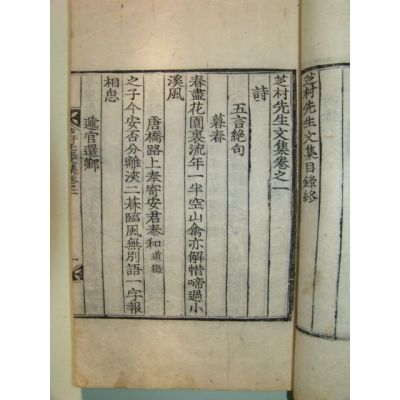 芝村先生文集目錄終
芝村先生文集卷之一
詩
五言絶句
暮春
春盡花園裏流年一半空山禽亦解惜啼過小
溪風
唐橋路上奉寄安君泰和道
之子今安否分離浹二朞臨風無別語一字報
相思
遞官還鄉